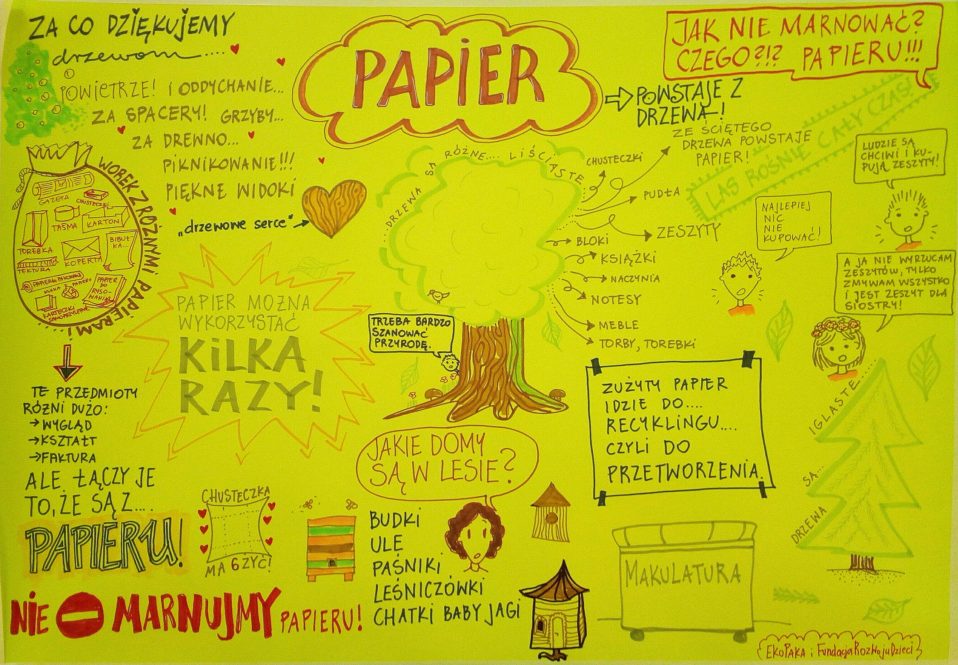 ZA CO DZIĘKUJEMY
drzewom....
POWIETRZE! I ODDYCHANIE...
ZA SPACERY! GRZYBY...
ZA DREWNO...
PIKNIKOWANIE!!!
PIĘKNE WIDOKI
„drzewowe serce"
PAPIER
POWSTAJE Z
DRZEWA!
ZE ŚCIĘTEGO
DRZEWA POWSTAJE
PAPIER!
JAK NIE MARNOWAĆ?
CZEGO?!? PAPIERU!!!
LAS ROŚNIE CAŁY CZAS
LUDZIE SĄ
CHCIWI I KU-
PUJĄ ZESZYTY!
NAJLEPIEJ
NIC
NIE
KUPOWAĆ!
A JA NIE WYRZUCAM
ZESZYTÓW, TYLKO
ZMYWAM WSZYSTKO
I JEST ZESZYT DLA
SIOSTRY!
WOREK Z RÓŻNYMI PAPIERAMI
GAZETA
CHUSTECZKI
TAŚMA
KARTON
TOREBKA
KOPERTA
BIBUŁ-
KA...
TEKTURA
PAPIER
DO
RYSO-
WANIA
DRZEWA SĄ RÓŻNE.... LIŚCIASTE
CHUSTECZKI
PUDŁA
ZESZYTY
BLOKI
KSIĄŻKI
NACZYNIA
NOTESY
MEBLE
TORBY, TOREBKI
TRZEBA BARDZO
SZANOWAĆ
PRZYRODĘ.
PAPIER MOŻNA
WYKORZYSTAĆ
KILKA
RAZY!
TE PRZEDMIOTY
RÓŻNI DUŻO:
WYGLĄD
KSZTAŁT
FAKTURA
ALE ŁĄCZY JE
TO, ŻE SĄ Z....
PAPIERU!
CHUSTECZKA
MA 6 ŻYĆ!
JAKIE DOMY
SĄ W LESIE?
BUDKI
ULE
PAŚNIKI
LEŚNICZÓWKI
CHATKI BABY JAGI
ZUŻYTY PAPIER
IDZIE DO....
RECYKLINGU....
CZYLI DO
PRZETWORZENIA.
MAKULATURA
DRZEWA SĄ... IGLASTE....
NIE MARNUJMY PAPIERU!
EKOPAKA i FundacjaRozwojuDzieci